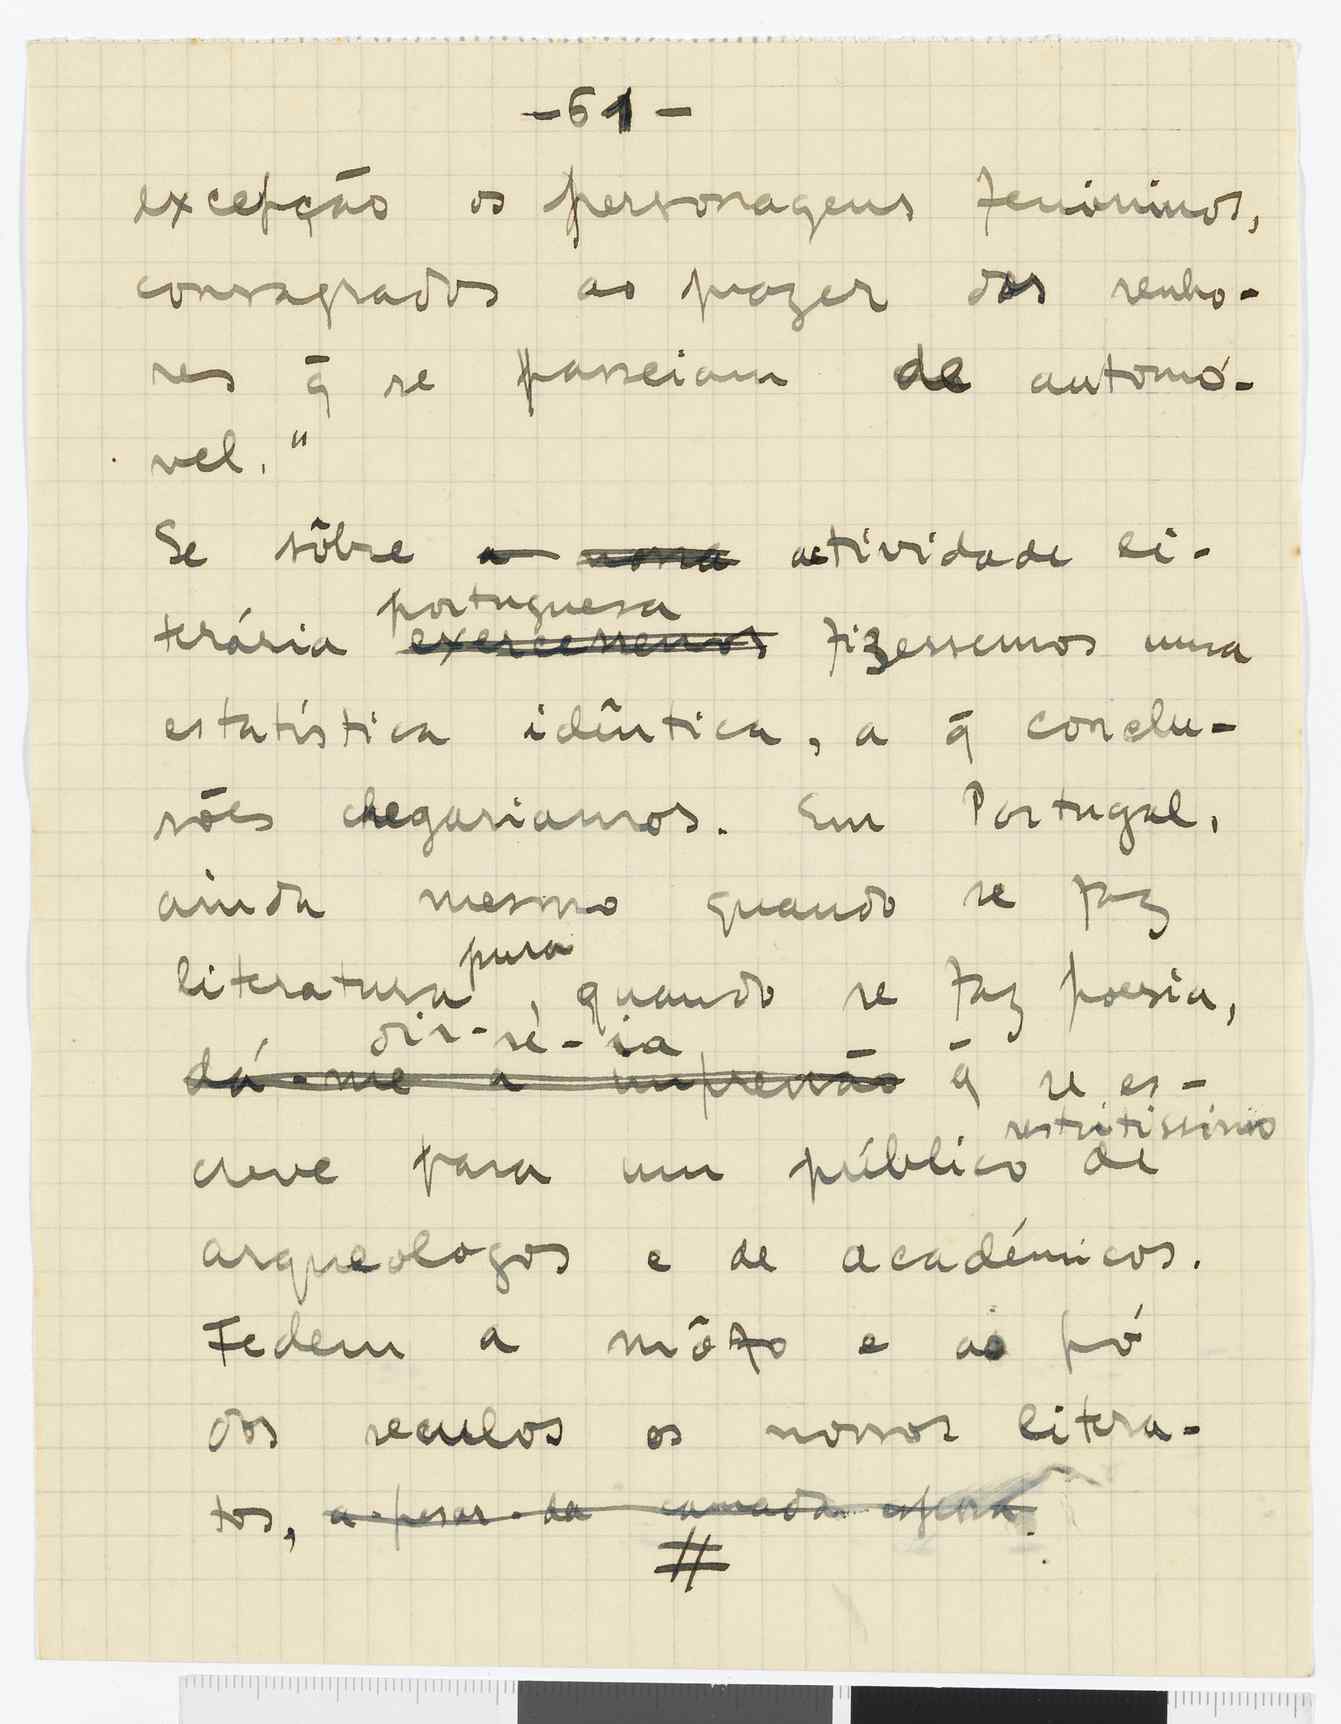 -61-
excepção os personagens femininos,
consagrados ao prazer dos senho-
res q̄ se passeiam de automó-
vel."
Se sôbre a nossa actividade li-
portuguesa
terária exercessemos fizessemos uma
estatística idêntica, a q̄ conclu-
sões chegariamos. Em Portugal,
ainda mesmo quando se faz
pura
literatura, quando se faz poesia,
dir-se-ia
dá-me a impressão q̄ se es-
restritissimo
creve para um público de
arqueologos e de académicos.
Fedem a môfo e ao pó
dos seculos os nossos litera-
tos, a-pesar-da camada espessa.
#